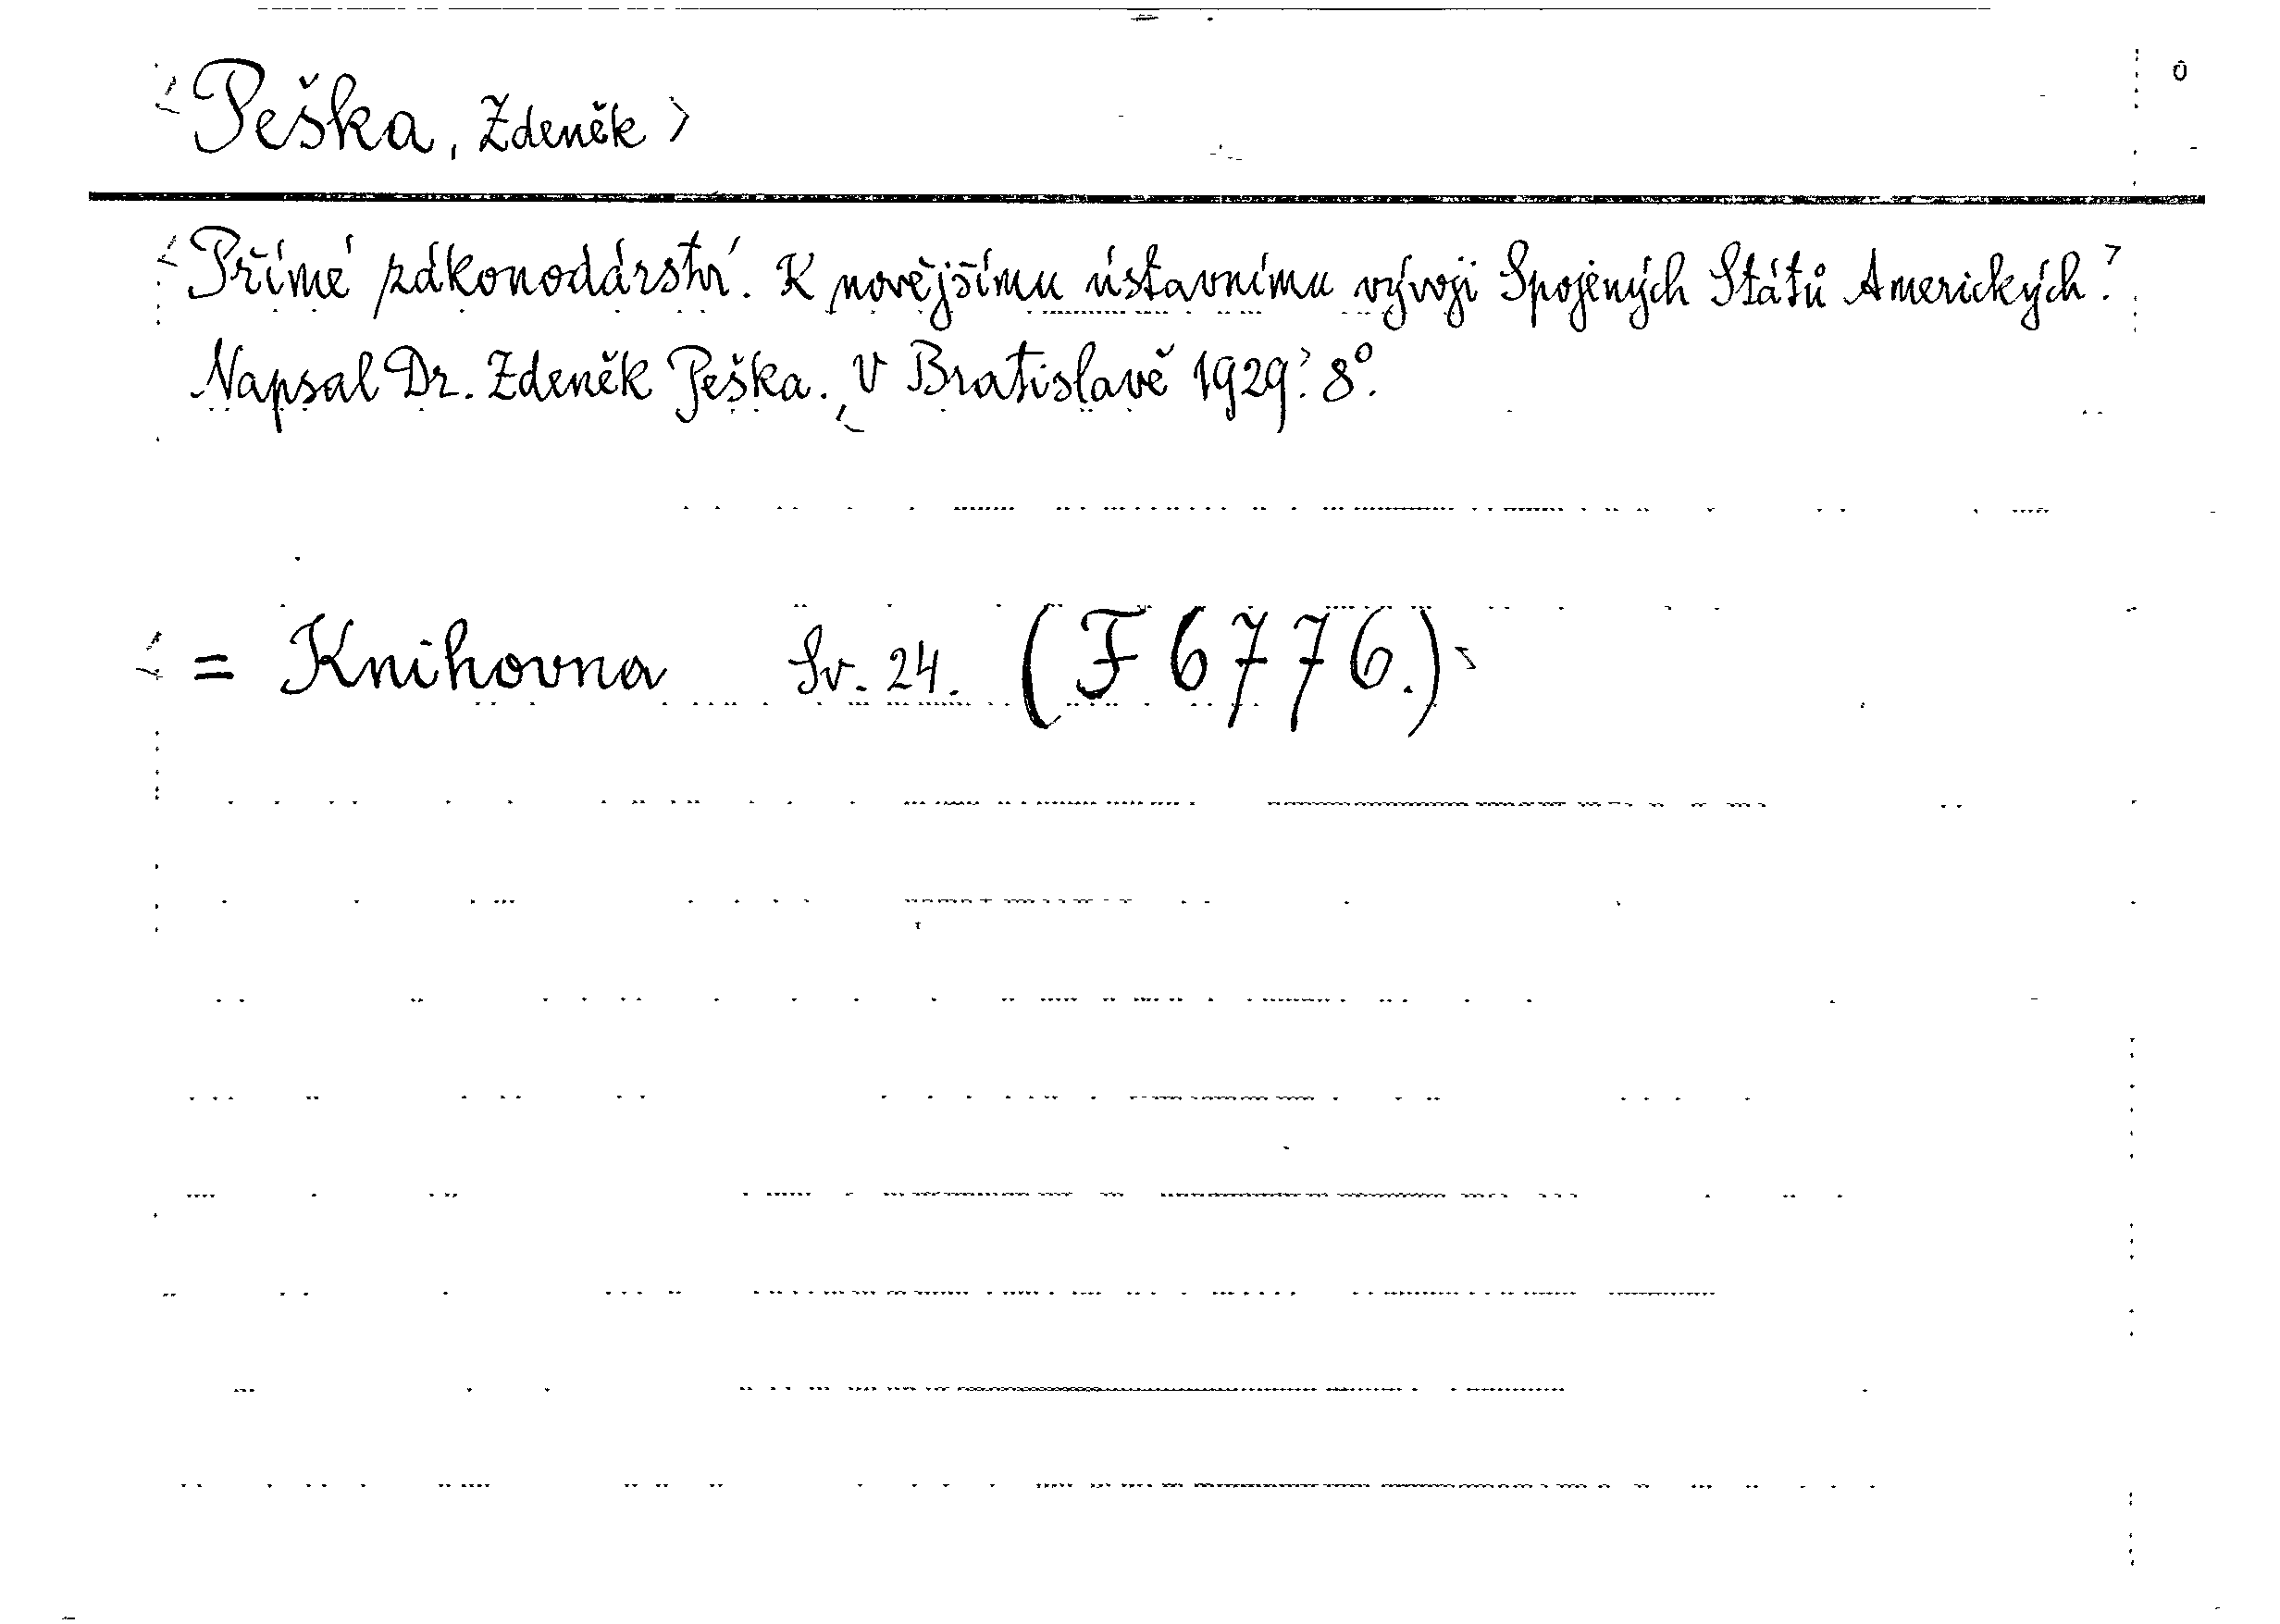 <Peška, Zdeněk>
<Přímé zákonodárství. K novějšímu ústavnímu vývoji Spojených Států Amerických.>
Napsal Dr. Zdeněk Peška. <V Bratislavě 1929.> 8°.
<= Knihovna Sv. 24. (F 6776.)>